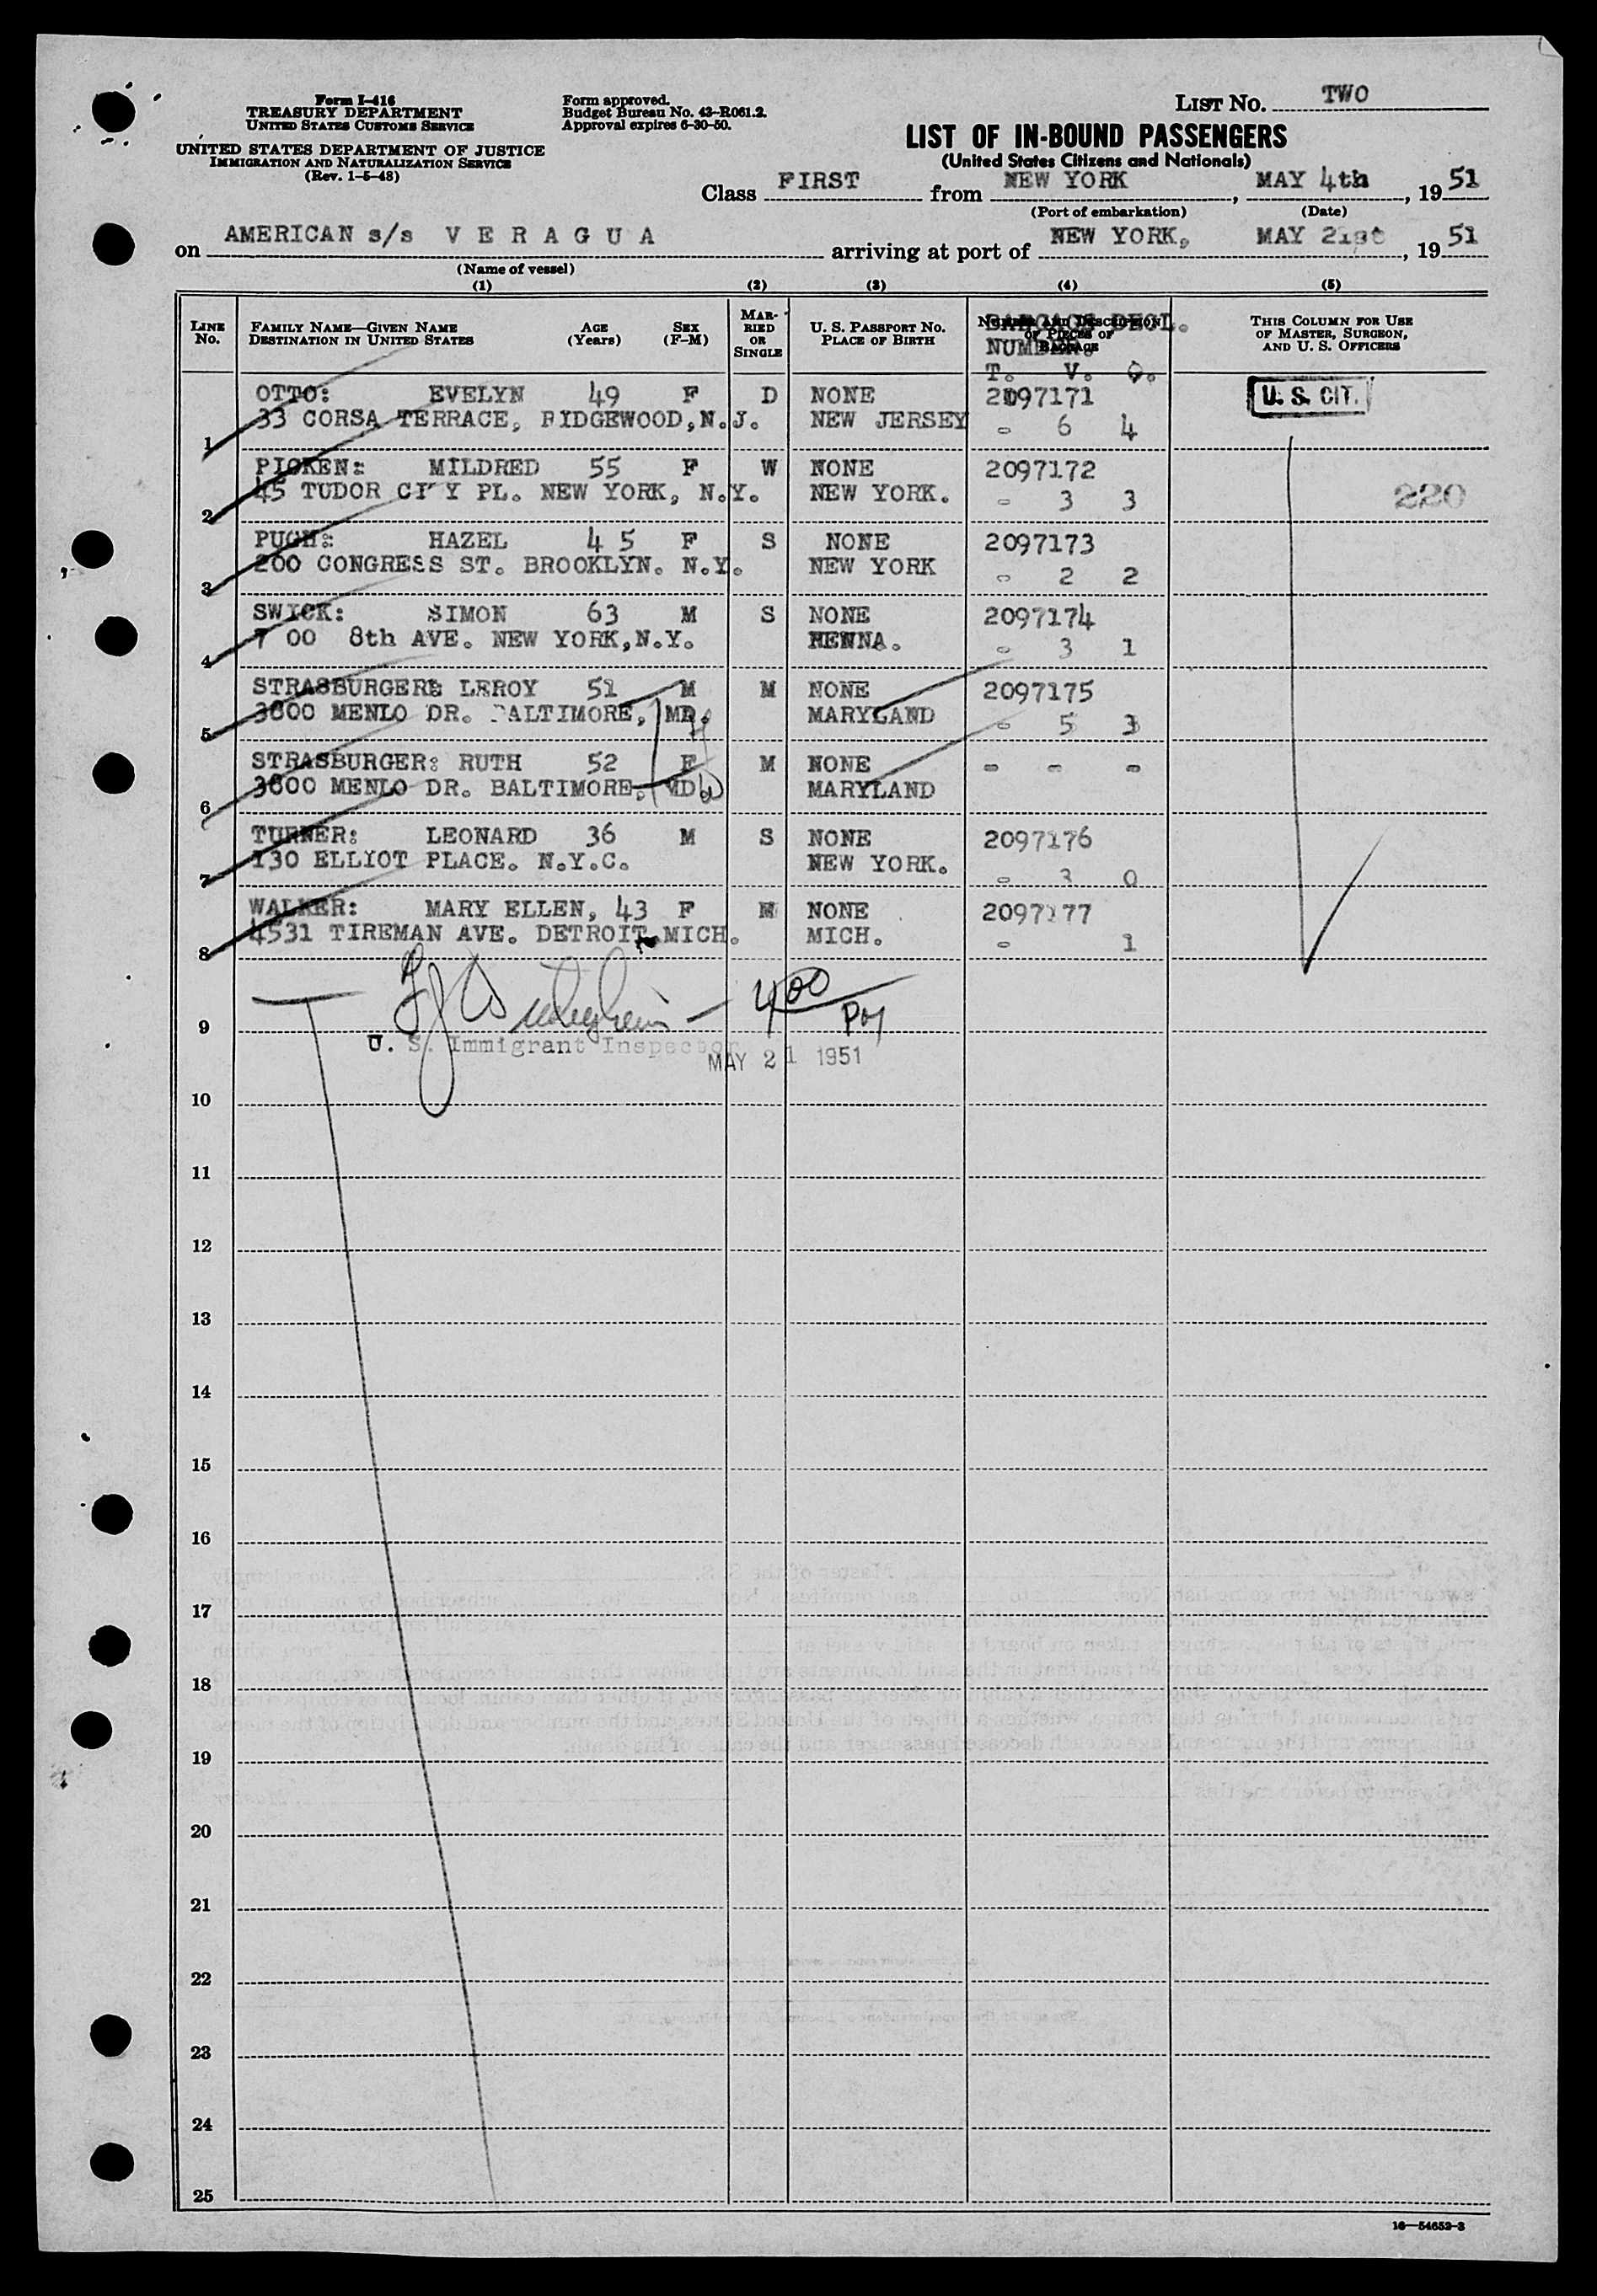 Form I-416
TREASURY DEPARTMENT
UNITED STATES CUSTOMS SERVICE
UNITED STATES DEPARTMENT OF JUSTICE
IMMIGRATION AND NATURALIZATION SERVICE
(Rev. 1-5-48)
Form approved.
Budget Bureau No. 43-R061.2.
Approval expires 6-30-50.
LIST No. TWO
LIST OF IN-BOUND PASSENGERS
(United States Citizens and Nationals)
Class FIRST from NEW YORK, MAY 4th, 1951
(Port of embarkation) (Date)
on AMERICAN s/s V E R A G U A arriving at port of NEW YORK, MAY 21st, 1951
(Name of vessel)
(1) (2) (3) (4) (5)
LINE No.
FAMILY NAME—GIVEN NAME
DESTINATION IN UNITED STATES
AGE (Years)
SEX (F-M)
MARRIED OR SINGLE
U. S. PASSPORT NO.
PLACE OF BIRTH
NUMBER AND DESCRIPTION OF PIECES OF BAGGAGE
BAGGAGE DECL.
NUMBER
T. V. O.
THIS COLUMN FOR USE OF MASTER, SURGEON, AND U. S. OFFICERS
OTTO: EVELYN 49 F D NONE 2097171 U. S. CIT.
1 33 CORSA TERRACE, RIDGEWOOD, N.J. NEW JERSEY - 6 4
PICKEN: MILDRED 55 F W NONE 2097172
2 45 TUDOR CITY PL. NEW YORK, N.Y. NEW YORK. - 3 3 220
PUGH: HAZEL 4 5 F S NONE 2097173
3 200 CONGRESS ST. BROOKLYN. N.Y. NEW YORK - 2 2
SWICK: SIMON 63 M S NONE 2097174
4 7 00 8th AVE. NEW YORK, N.Y. - 3 1
STRASBURGER: LEROY 51 M M NONE 2097175
5 3800 MENLO DR. BALTIMORE, MD. MARYLAND - 5 3
STRASBURGER: RUTH 52 F M NONE - - -
6 3800 MENLO DR. BALTIMORE. MD. MARYLAND
TURNER: LEONARD 36 M S NONE 2097176
7 130 ELLIOT PLACE. N.Y.C. NEW YORK. - 3 0
WALKER: MARY ELLEN, 43 F NONE 2097177
8 4531 TIREMAN AVE. DETROIT MICH. MICH. - 1
400
9
U. S. Immigrant Inspector
MAY 21 1951
10
11
12
13
14
15
16
17
18
19
20
21
22
23
24
25
16—54653-3